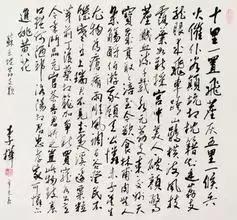 十里一置飛塵灰五里一堠兵
火催仆谷顛坑相枕藉知是荔枝
龍眼來飛車跨山鶻橫海風枝
露葉如新採宮中美人一破顏驚
塵濺血流千載永元荔枝來交州
天寶歲貢取之涪至今欲食林甫肉無人
舉觴酹伯游我願天公憐赤子莫生
尤物為瘡痏雨順風調百穀登民不
飢寒為上瑞君不見武夷溪邊粟粒
芽前丁後蔡相籠加爭新買寵各出意
今年鬥品充官茶吾君所乏豈此物致養
口體何陋耶洛陽相君忠孝家可憐亦
進姚黃花
李鐸